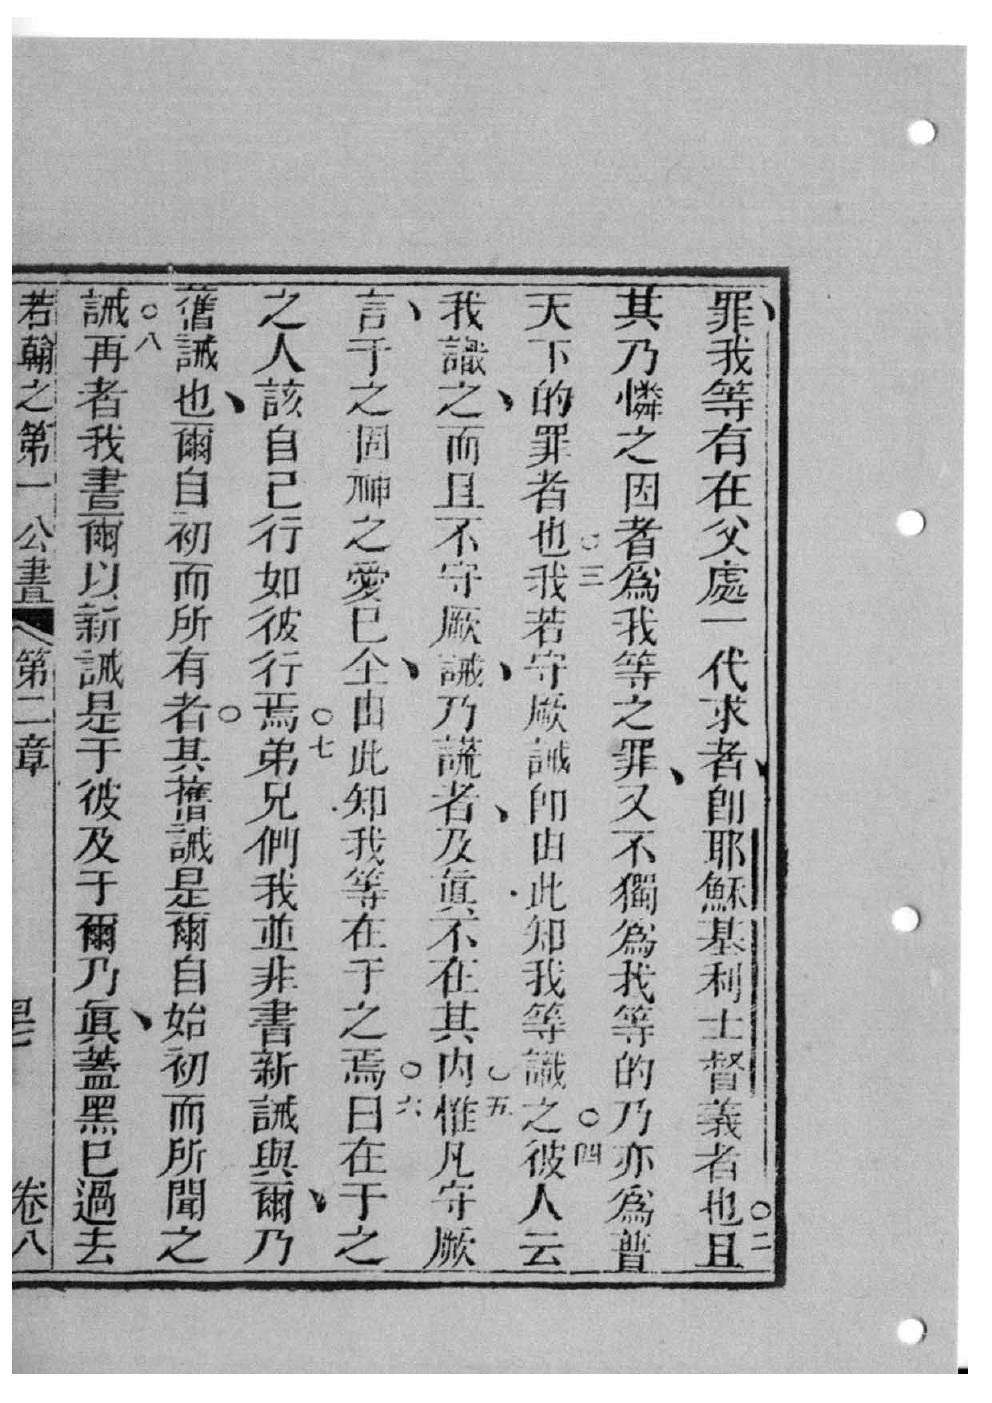 罪、我等有在父處一代求者、卽耶穌基利士督義者也○二且
其乃憐之因者爲我等之罪、又不獨爲我等的乃亦爲普
天下的罪者也○三我若守厥誡卽由此知我等識之○四彼人云
我識之、而且不守厥誡、乃謊者、及眞不在其內○五惟凡守厥
言、于之固神之愛已全、由此知我等在于之焉○六曰在于之
之人該自己行如彼行焉○七弟兄們我並非書新誡與爾、乃
舊誡也、爾自初而所有者○其舊誡是爾自始初而所聞之
誡○八再者我書爾以新誡是于彼及于爾乃眞、蓋黑已過去
若翰之第一公書 第二章 卷八